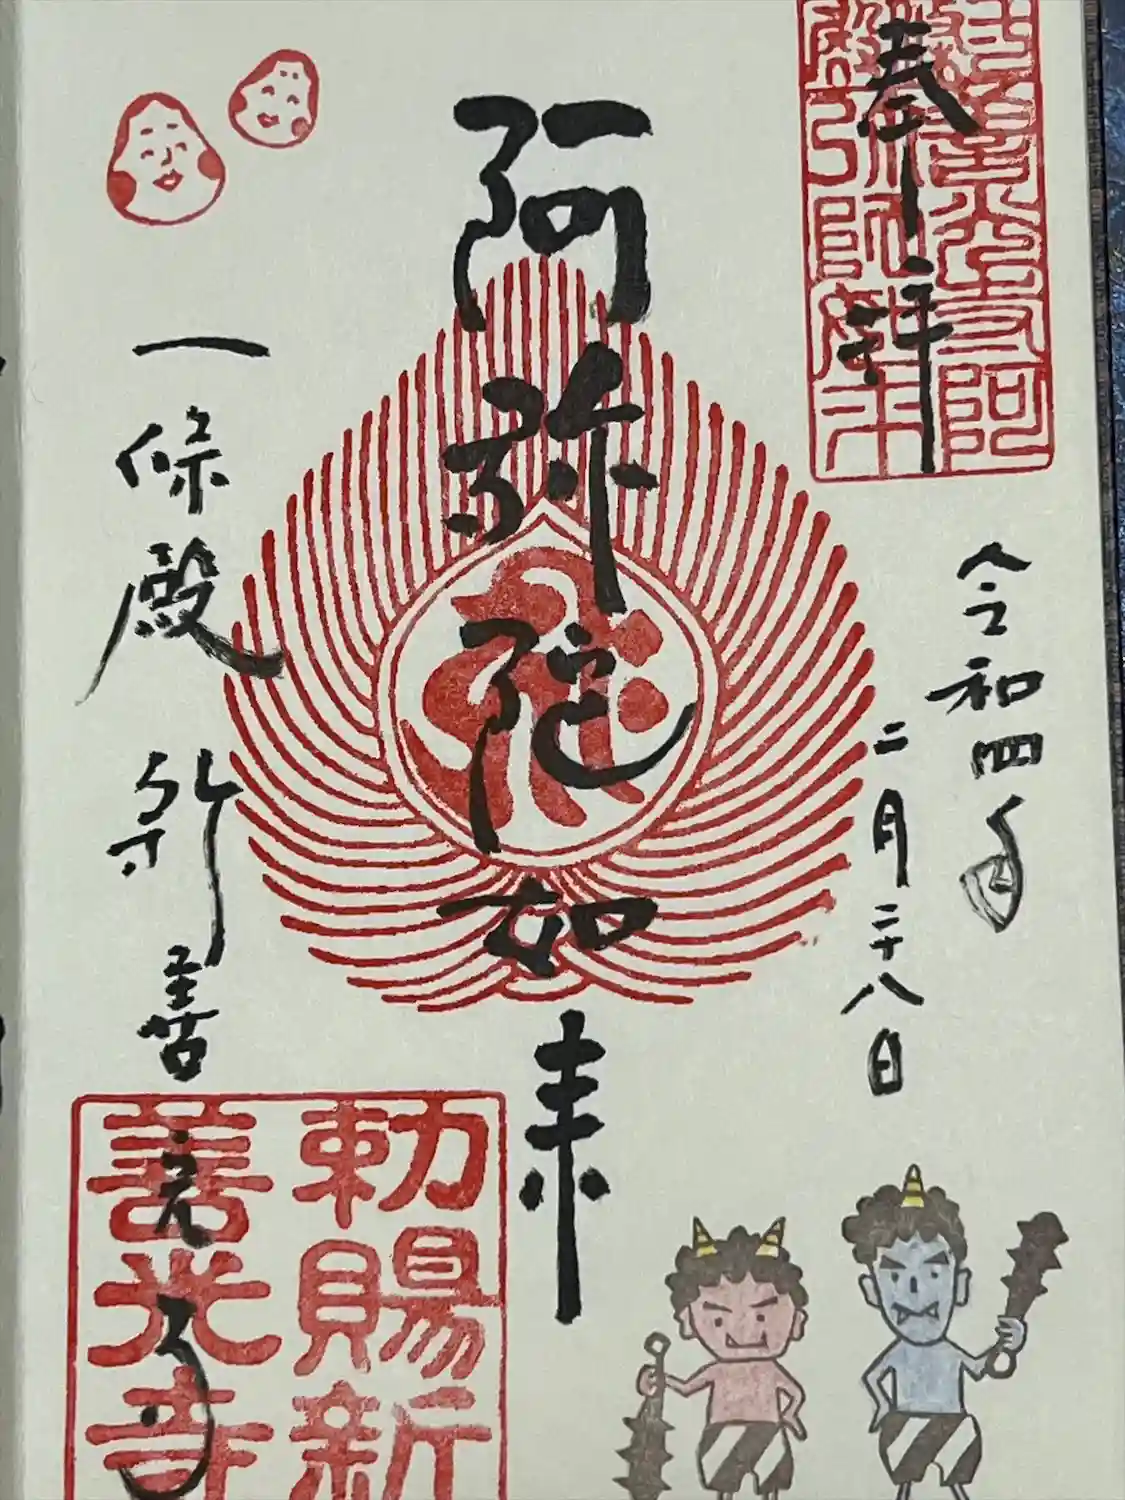 奉拝
令和四年
二月二十八日
阿弥陀如来
一條殿 新善光寺
勅賜新
善光寺